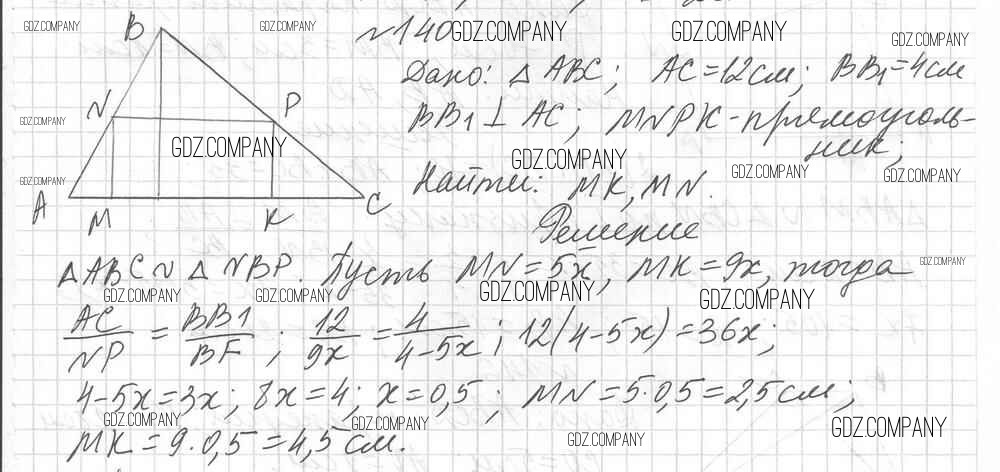 GDZ.COMPANY B GDZ.COMPANY №140 GDZ.COMPANY GDZ.COMPANY GDZ.COMPANY
Дано: △ABC; AC=12см; BB₁=4см
N P
GDZ.COMPANY BB1 ⊥ AC; MNPK-прямоуголь-
GDZ.COMPANY GDZ.COMPANY ник;
GDZ.COMPANY Найти: MK, MN. GDZ.COMPANY GDZ.COMPANY
A M K C
Решение
△ABC ∾ △NBP. Пусть MN=5x, MK=9x, тогда GDZ.COMPANY
GDZ.COMPANY GDZ.COMPANY GDZ.COMPANY GDZ.COMPANY
AC/NP = BB1/BF; 12/9x = 4/4-5x; 12(4-5x)=36x;
4-5x=3x; 8x=4; x=0,5; MN=5·0,5=2,5см;
GDZ.COMPANY GDZ.COMPANY GDZ.COMPANY
MK=9·0,5=4,5см. GDZ.COMPANY